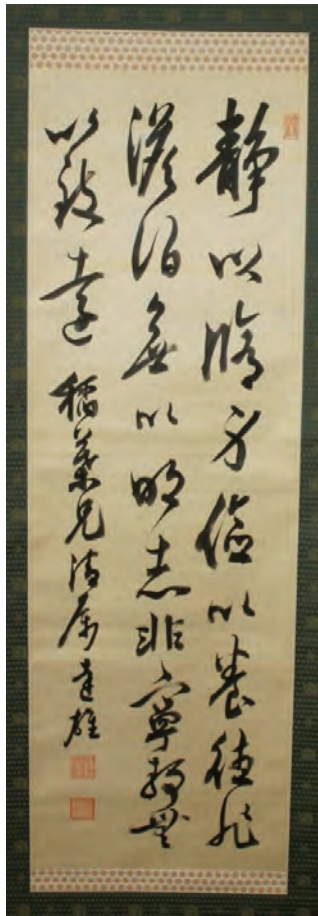 靜以脩身儉以養徳非
澹泊無以明志非寧静無
以致遠 稲葉兄清属 達雄